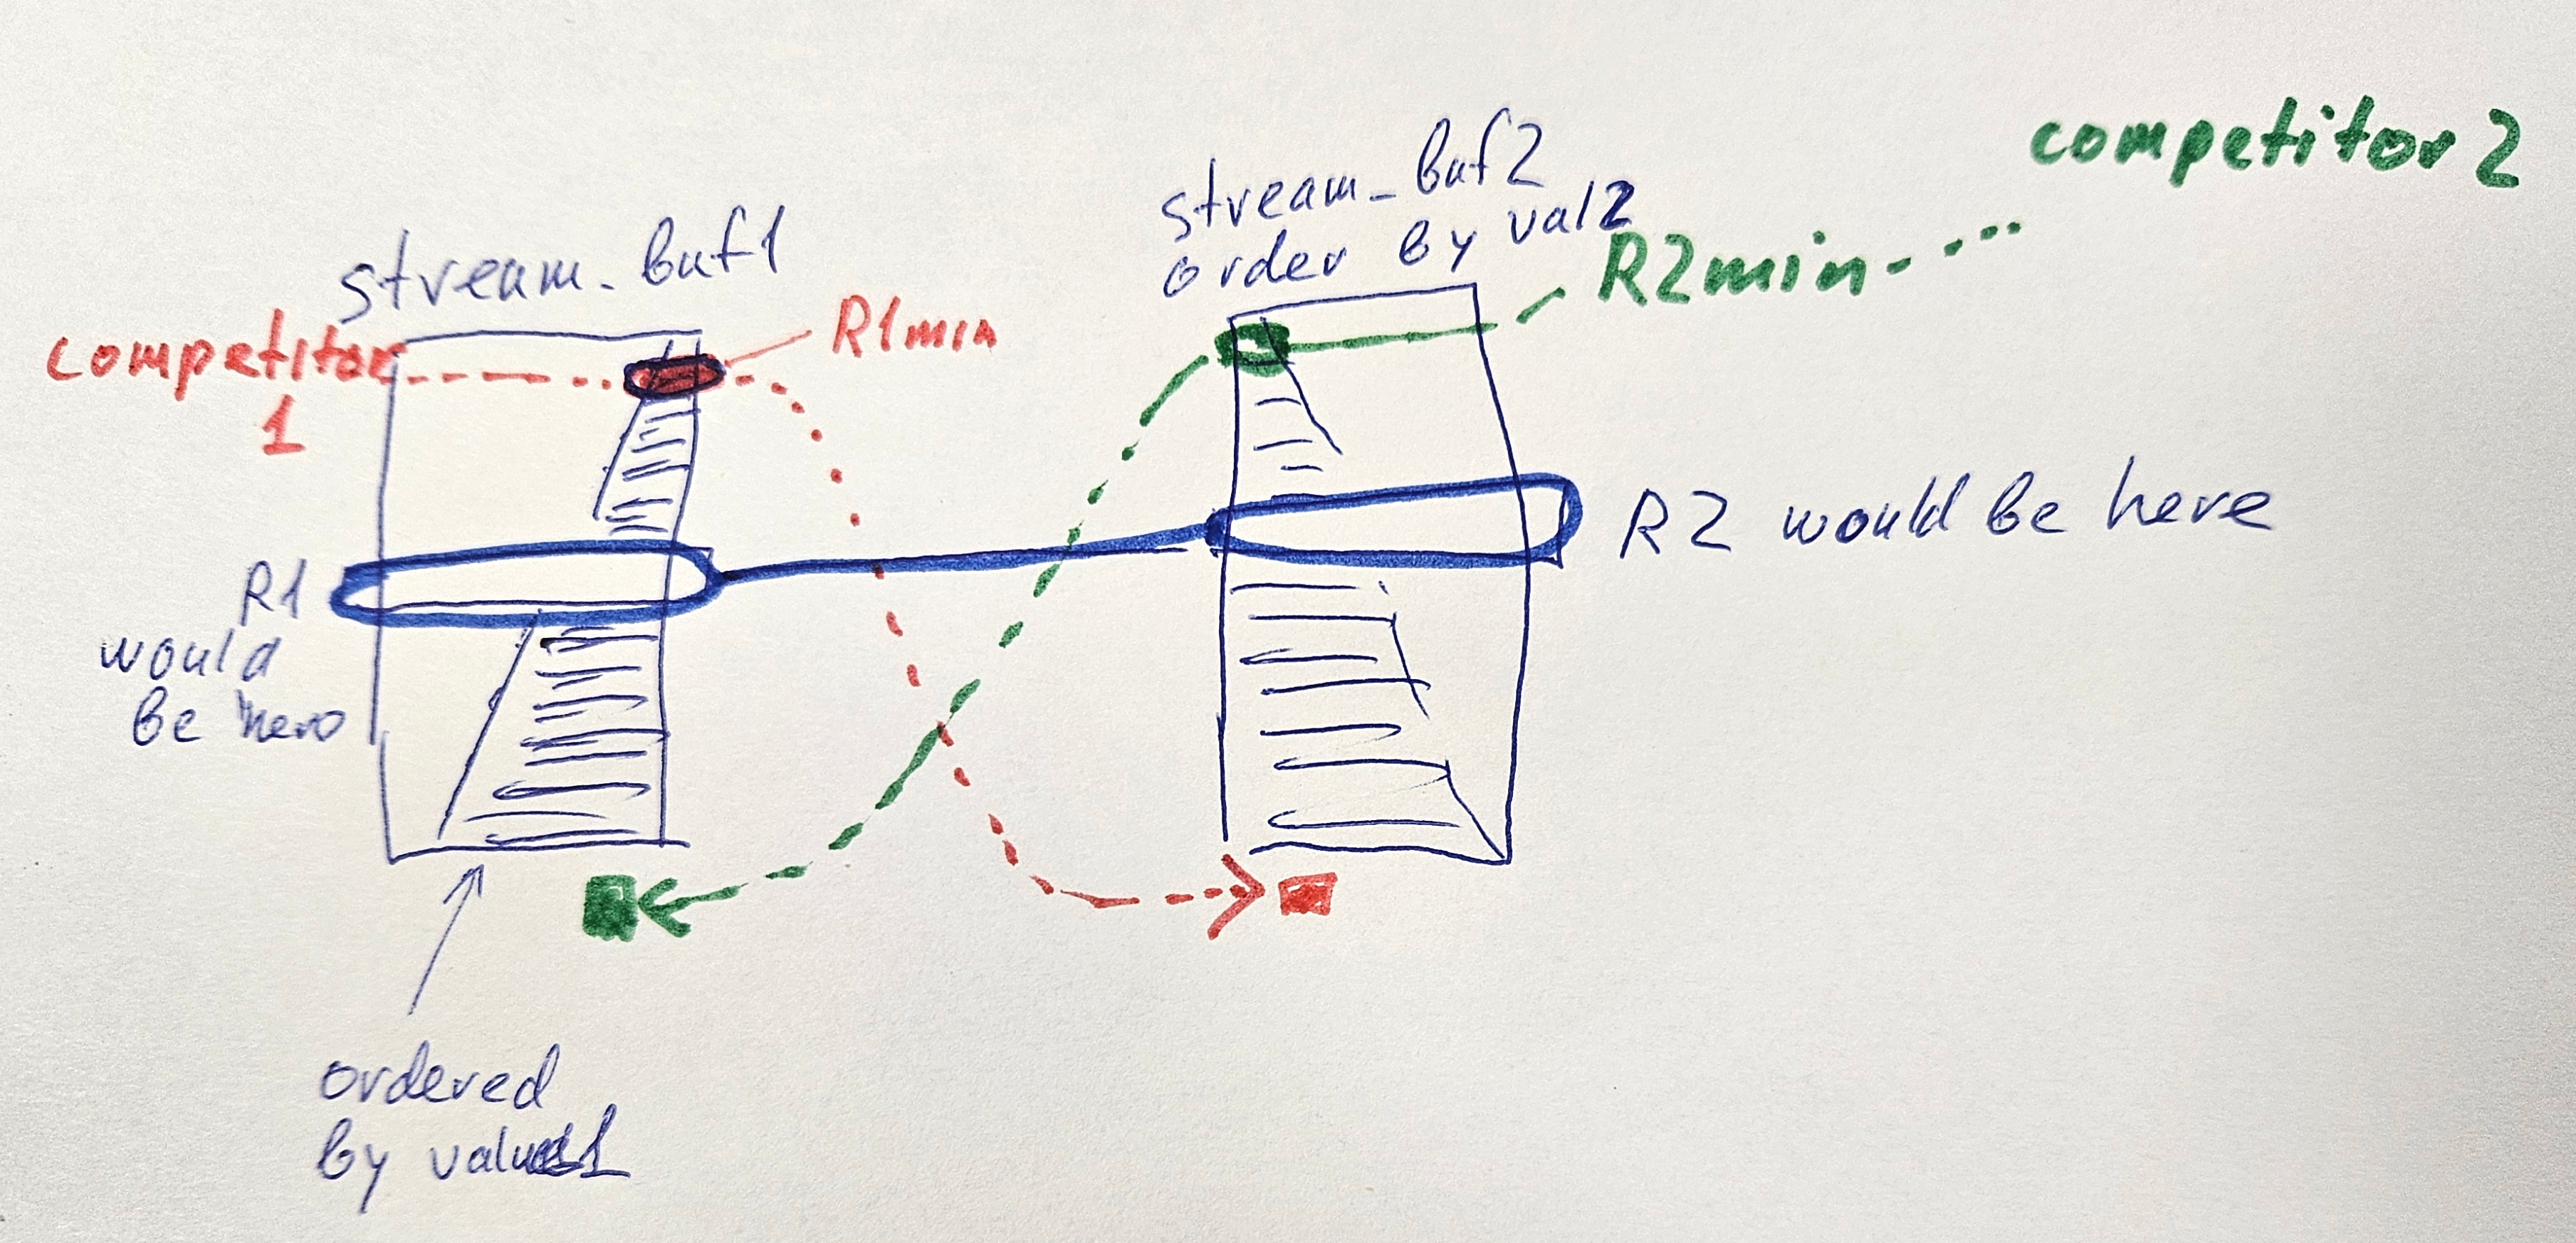 competitor 2
stream_buf2
order by val2
R2min
stream_buf1
R1min
competitor
1
R2 would be here
R1
would
be hero
ordered
by value1